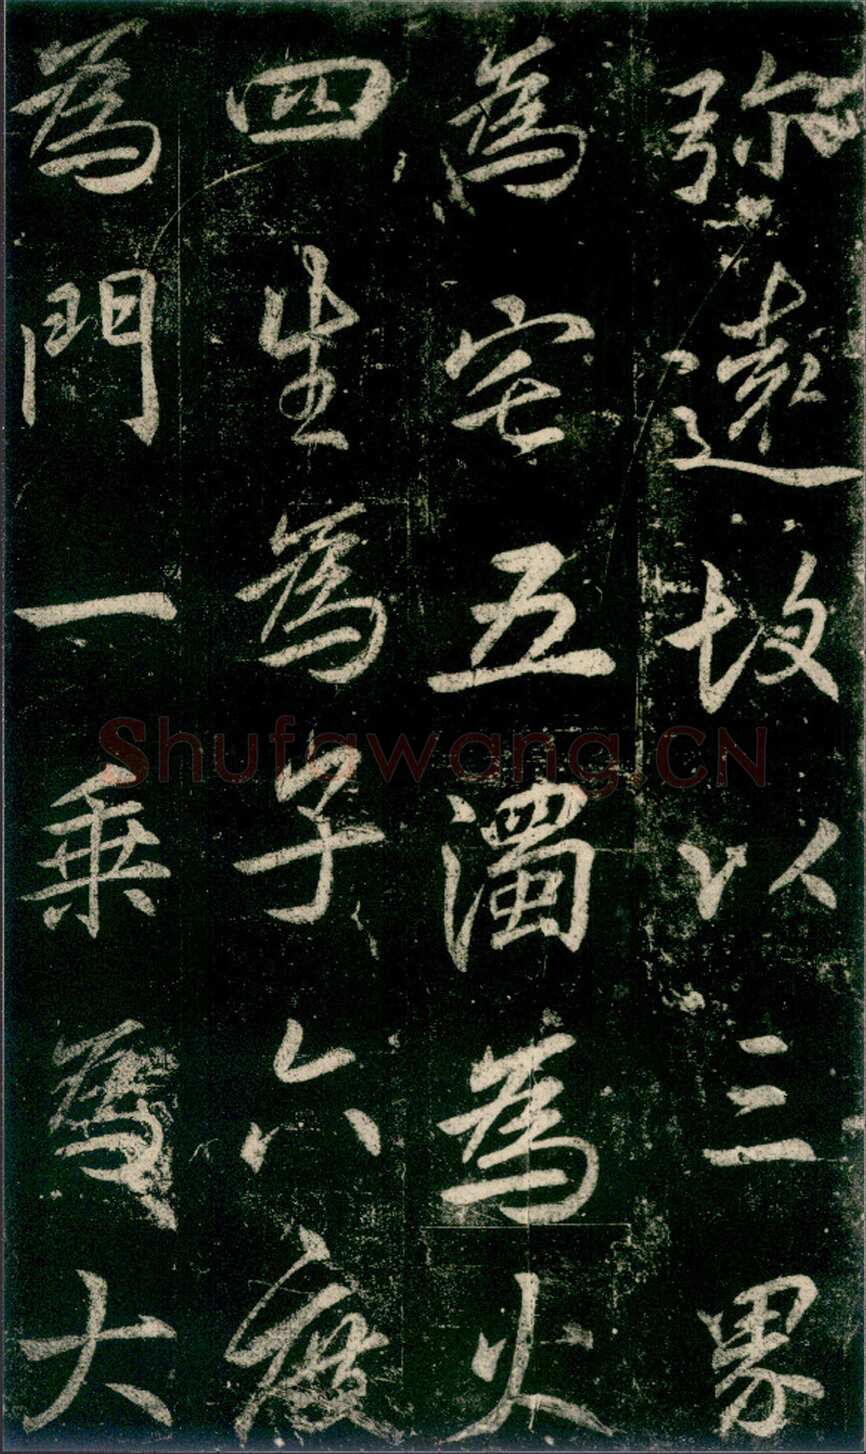 弥遠故以三界
為宅五濁為火
四生為子六度
為門一乗為大
Shufawang.CN